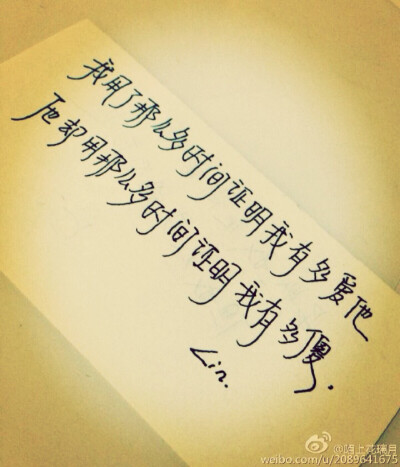 我用了那么多时间证明我有多爱他
而他却用那么多时间证明我有多傻.
Lin.
@陌上花璃月
weibo.com/u/2089641675